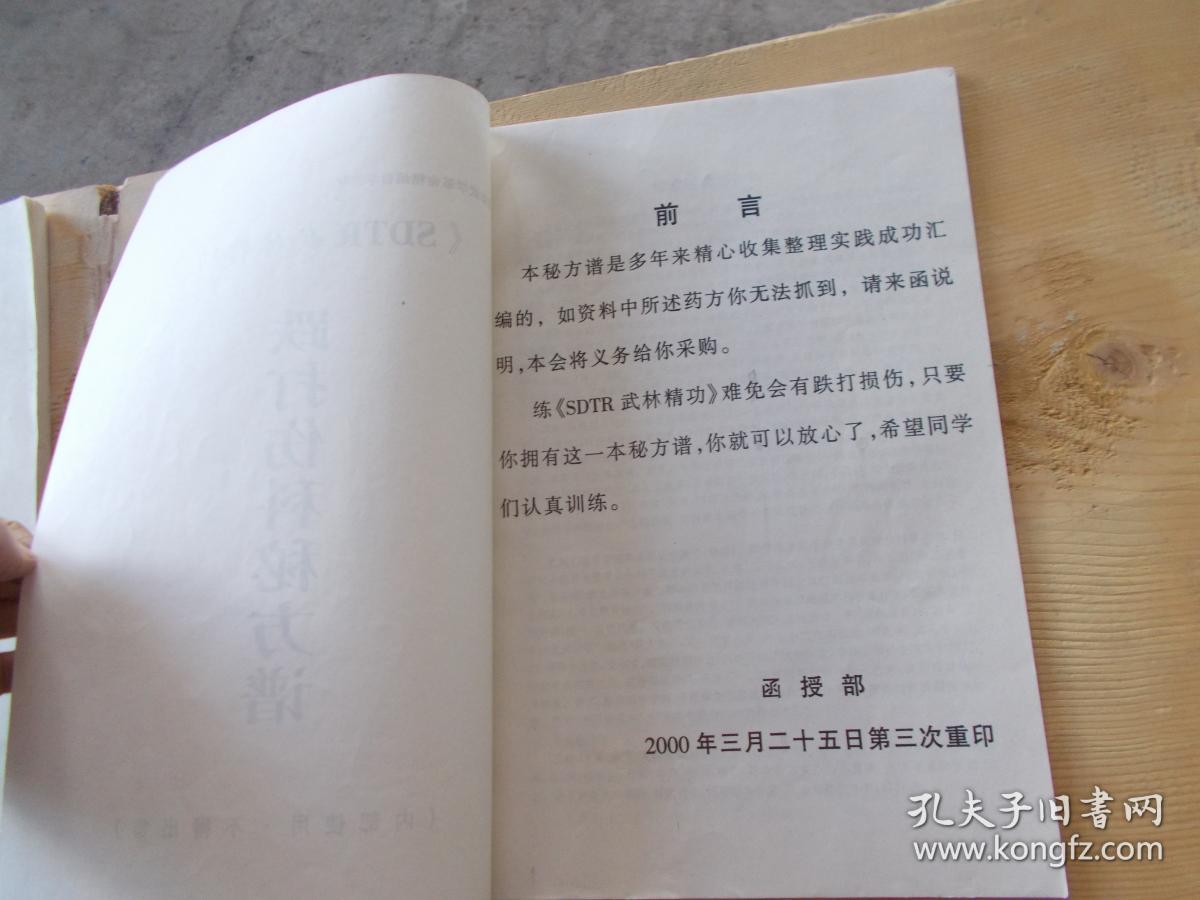 前 言
本秘方谱是多年来精心收集整理实践成功汇
编的，如资料中所述药方你无法抓到，请来函说
明，本会将义务给你采购。
练《SDTR 武林精功》难免会有跌打损伤，只要
你拥有这一本秘方谱，你就可以放心了，希望同学
们认真训练。
函 授 部
2000 年三月二十五日第三次重印
《SDTR
跌打伤科秘方谱
孔夫子旧书网
www.kongfz.com